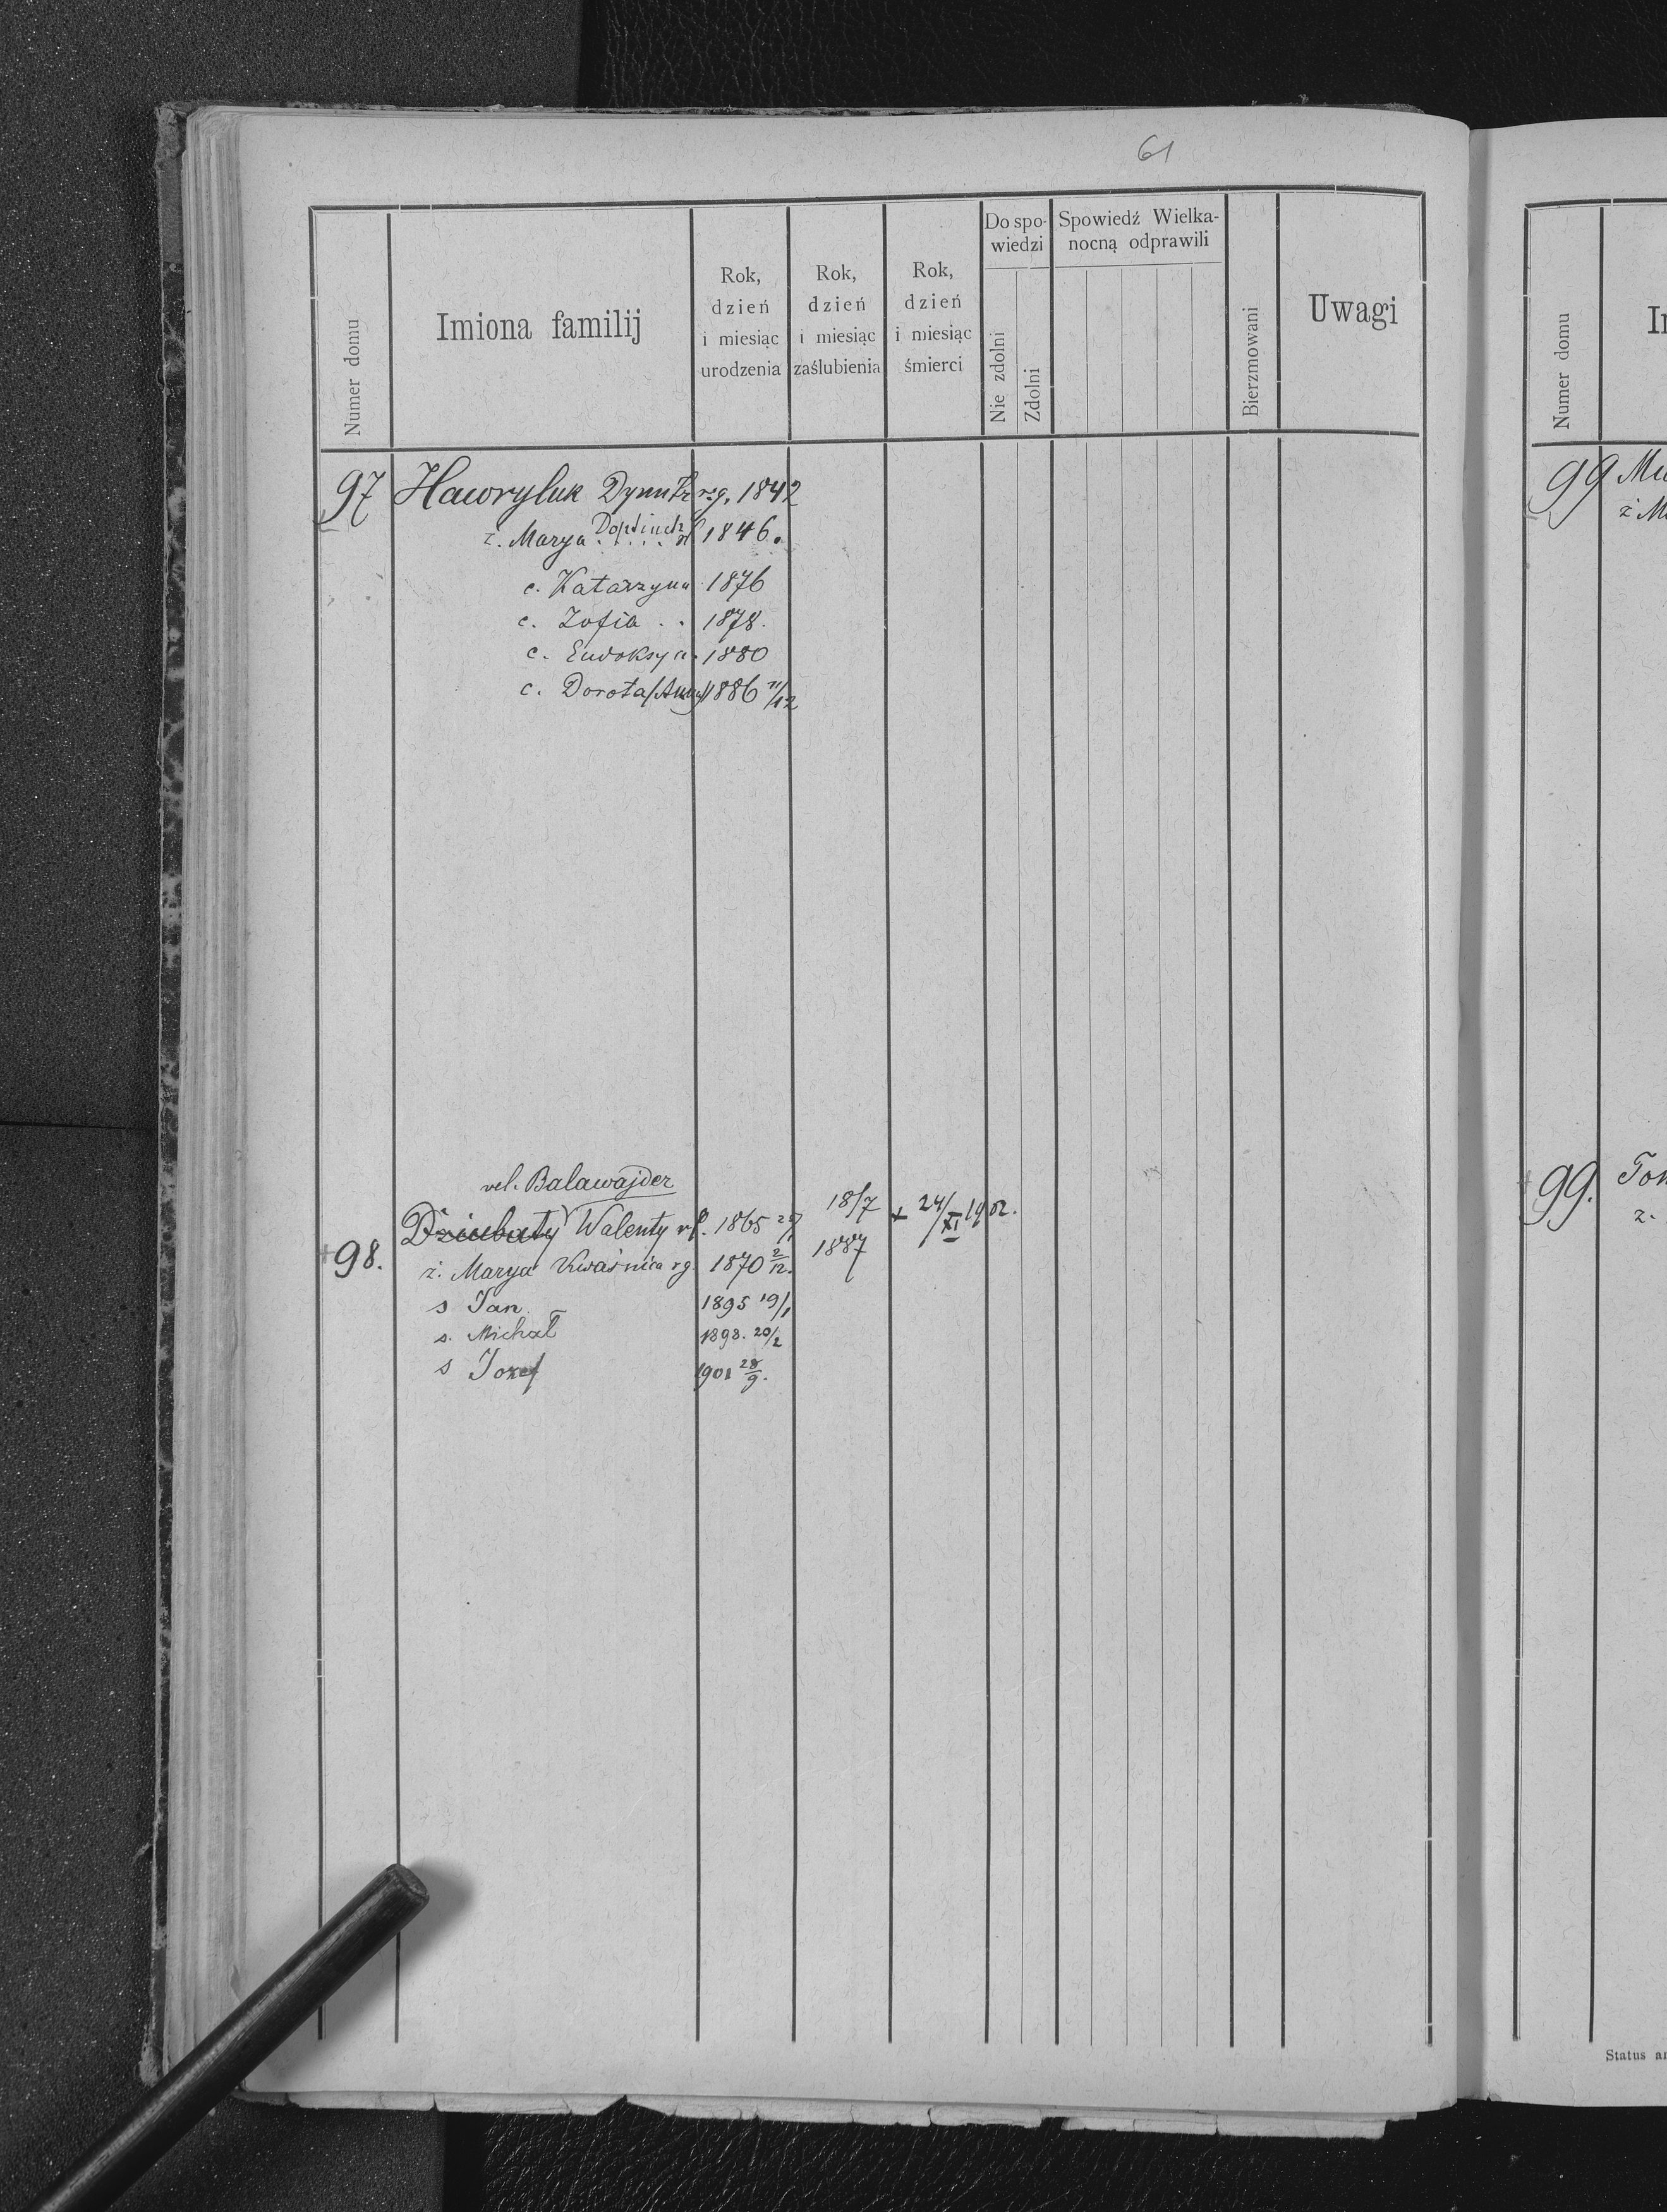 61
Numer domu
Imiona familij
Rok, dzień i miesiąc urodzenia
Rok, dzień i miesiąc zaślubienia
Rok, dzień i miesiąc śmierci
Do spo-
wiedzi
Nie zdolni
Zdolni
Spowiedź Wielka-
nocną odprawili
Bierzmowani
Uwagi
97 Hawryluk Dymitr rg. 1842
ż. Marya 1846.
c. Katarzyna 1876
c. Zofia . . 1878.
c. Eudoksya . 1880
c. Dorota /Anna/ 1886 11/12
vel. Balawajder
+98. Dziubaty Walenty rł. 1865 18/7 1887 + 24/XI 1902.
ż. Marya Kwaśnica rg. 1870 2/12.
s Jan 1895 19/1
s. Michał 1898. 20/2
s Jozef 1901 28/9.
Numer domu
99
ż
99.
ż.
Status